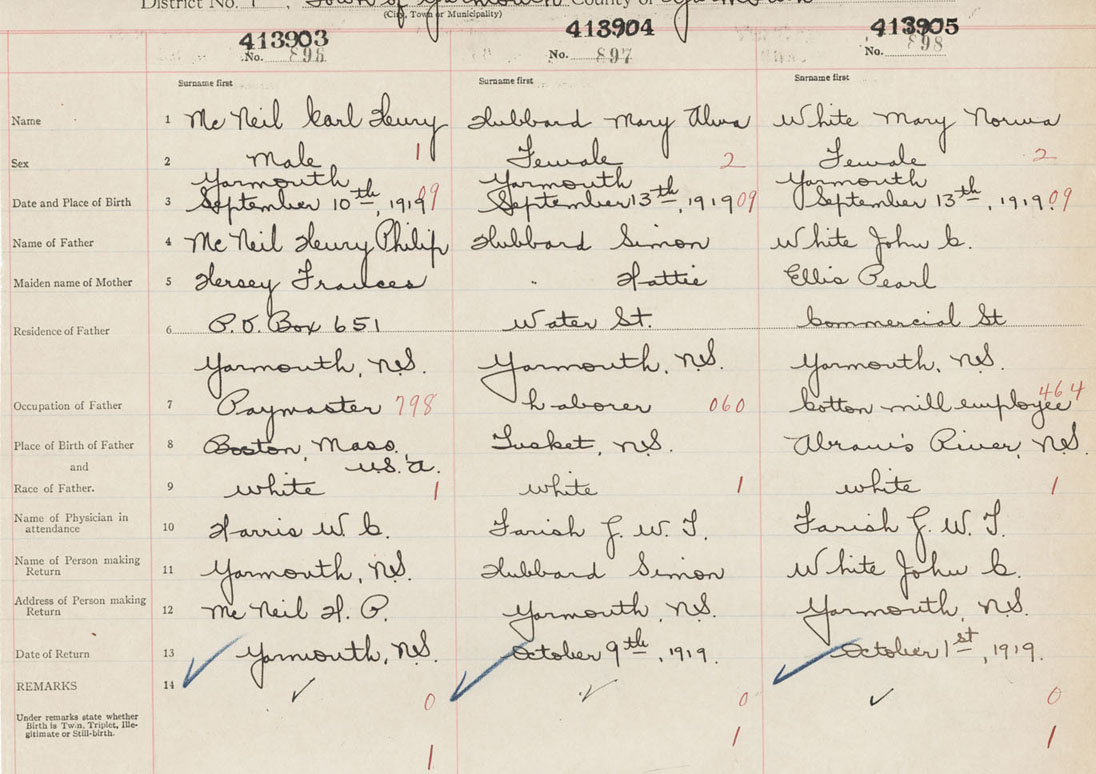 District No. 1, Town of Yarmouth County of Yarmouth
(City, Town or Municipality)
413903 413904 413905
No. 896 No. 897 No. 898
Surname first Surname first Surname first
Name 1 McNeil Carl Henry Hubbard Mary Alma White Mary Norma
Sex 2 Male 1 Female 2 Female 2
Yarmouth Yarmouth Yarmouth
Date and Place of Birth 3 September 10th, 1919 09 September 13th, 1919 09 September 13th, 1919. 09
Name of Father 4 McNeil Henry Philip Hubbard Simon White John C.
Maiden name of Mother 5 Hersey Frances " Hattie Ellis Pearl
Residence of Father 6 P.O. Box 651 Water St. Commercial St
Yarmouth, N.S. Yarmouth, N.S. Yarmouth, N.S.
Occupation of Father 7 Paymaster 798 Laborer 060 Cotton mill employee 464
Place of Birth of Father 8 Boston, Mass. Tusket, N.S. Abram's River, N.S.
and U.S.A.
Race of Father. 9 White 1 White 1 White 1
Name of Physician in attendance 10 Harris W. C. Farish G. W. T. Farish G. W. T.
Name of Person making Return 11 Yarmouth, N.S. Hubbard Simon White John C.
Address of Person making Return 12 McNeil H. P. Yarmouth, N.S. Yarmouth, N.S.
Date of Return 13 Yarmouth, N.S. October 9th, 1919. October 1st, 1919.
REMARKS 14 ✓ 0 ✓ 0 ✓ 0
Under remarks state whether
Birth is Twin, Triplet, Ille-
gitimate or Still-birth.
1 1 1